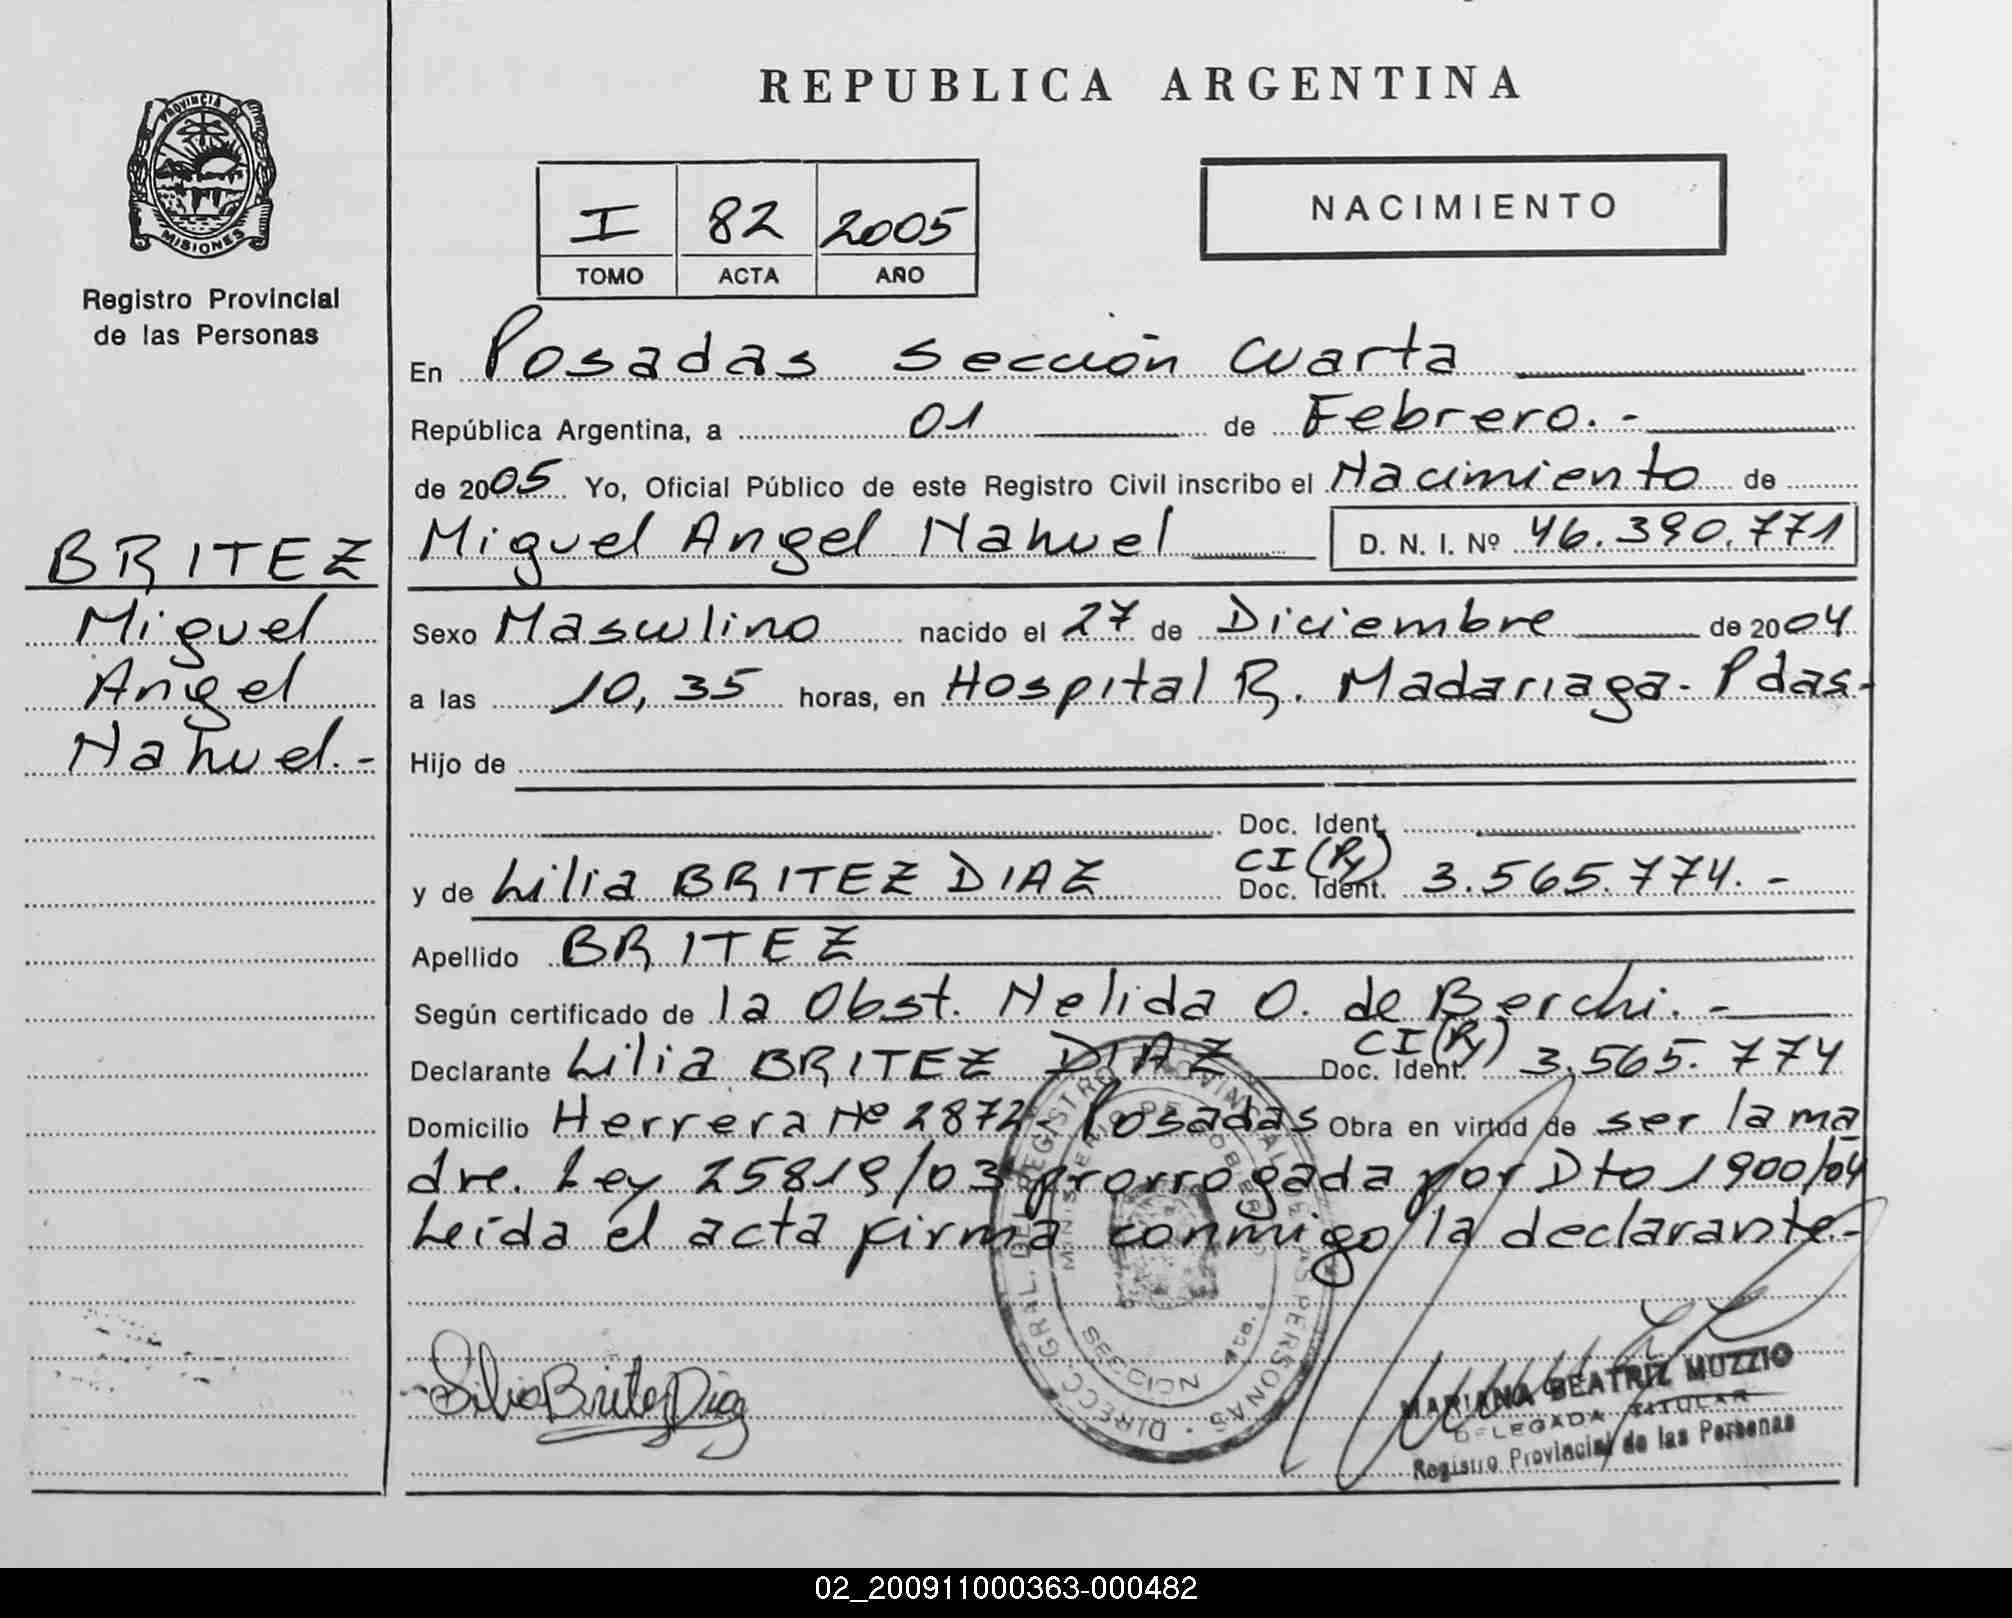 REPUBLICA ARGENTINA
PROVINCIA DE
MISIONES
Registro Provincial
de las Personas
I 82 2005
TOMO ACTA AÑO
NACIMIENTO
BRITEZ
Miguel
Angel
Nahuel.-
En Posadas Sección Cuarta
República Argentina, a 01 de Febrero.-
de 2005 Yo, Oficial Público de este Registro Civil inscribo el Nacimiento de
Miguel Angel Nahuel D. N. I. Nº 46.390.771
Sexo Masculino nacido el 27 de Diciembre de 2004
a las 10,35 horas, en Hospital R. Madariaga- Pdas-
Hijo de
Doc. Ident.
y de Lilia BRITEZ DIAZ Doc. Ident. CI (Py) 3.565.774.-
Apellido BRITEZ
Según certificado de la Obst. Nelida O. de Berchi.-
Declarante Lilia BRITEZ DIAZ Doc. Ident. CI (Py) 3.565.774
Domicilio Herrera Nº 2872- Posadas Obra en virtud de ser la ma
dre. Ley 25819/03 prorrogada por Dto 1900/04
Leída el acta firma conmigo la declarante-
DIRECC. GRAL. DEL REGISTRO PROVINCIAL DE LAS PERSONAS
MINISTERIO DE GOBIERNO
SECCION 4ta.
Lilia Britez Diaz
MARIANA BEATRIZ MUZZIO
DELEGADA TITULAR
Registro Provincial de las Personas
02_200911000363-000482